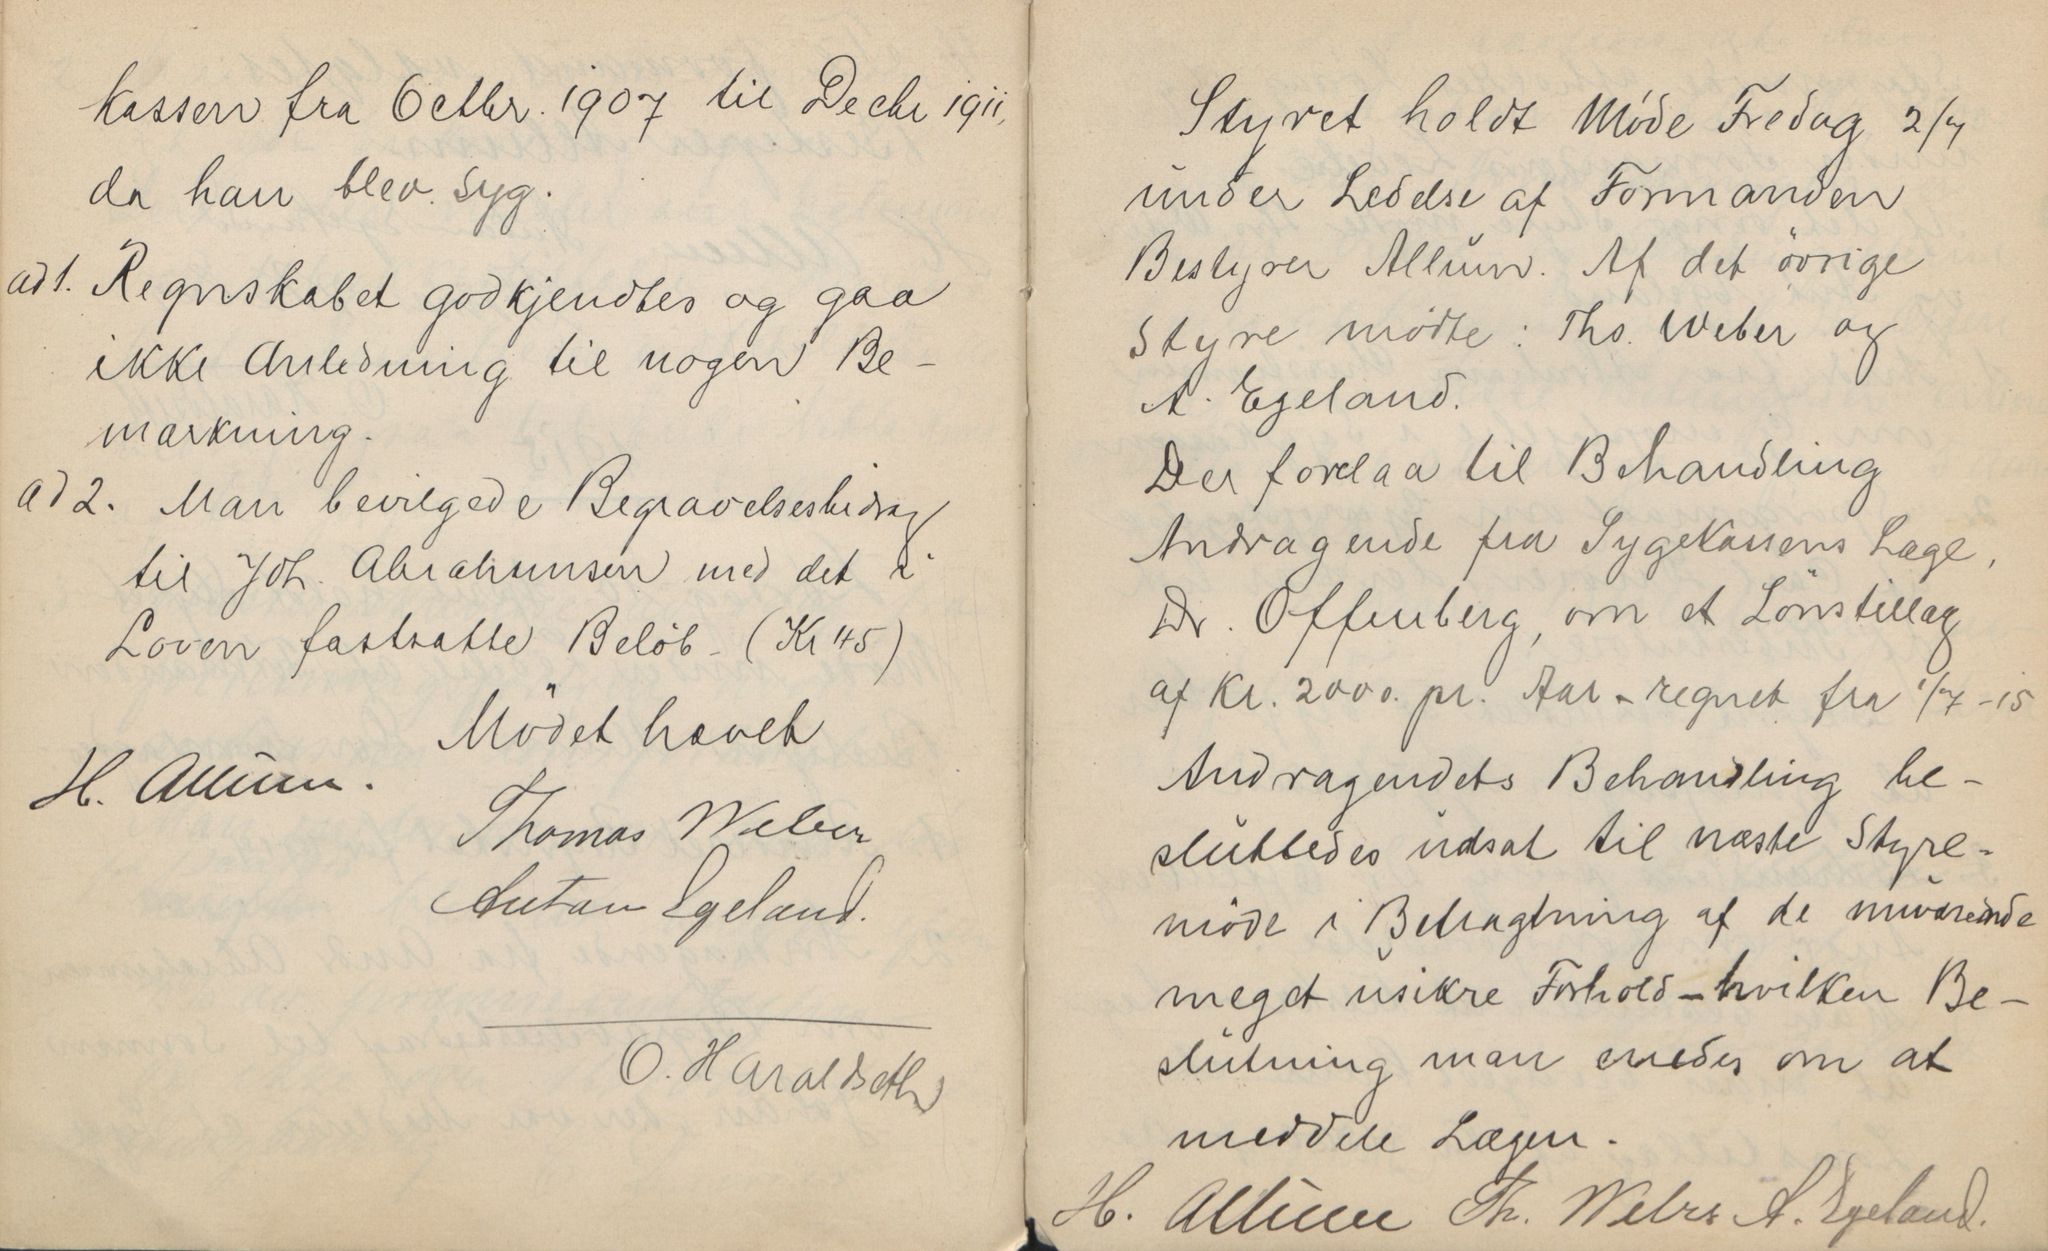 Kassen fra Octbr. 1907 til Decbr 1911,
da han blev syg.
ad 1. Regnskabet godkjendtes og gaa
ikke Anledning til nogen Be-
mærkning.
ad 2. Man bevilgede Begravelsesbidrag
til Joh. Abrahamsen med det i
Loven fastsatte Beløb - (Kr 45)
Mödet hævet
H. Allum.
Thomas Weber
Anton Egeland.
O. Haraldseth
Styret holdt Möde Fredag 2/7
under Ledelse af Formanden
Bestyrer Allum. Af det övrige
Styre mödte: Ths. Weber og
A. Egeland.
Der forelaa til Behandling
Andragende fra Sygekassens Læge,
Dr. Offenberg, om et Lönstillæg
af Kr. 2000. pr. Aar - regnet fra 1/7 - 15
Andragendets Behandling be-
sluttedes udsat til næste Styre-
möde i Betragtning af de nuværende
meget usikre Forhold - hvilken Be-
slutning man enedes om at
meddele Lægen.
H. Allum Th. Weber A. Egeland.